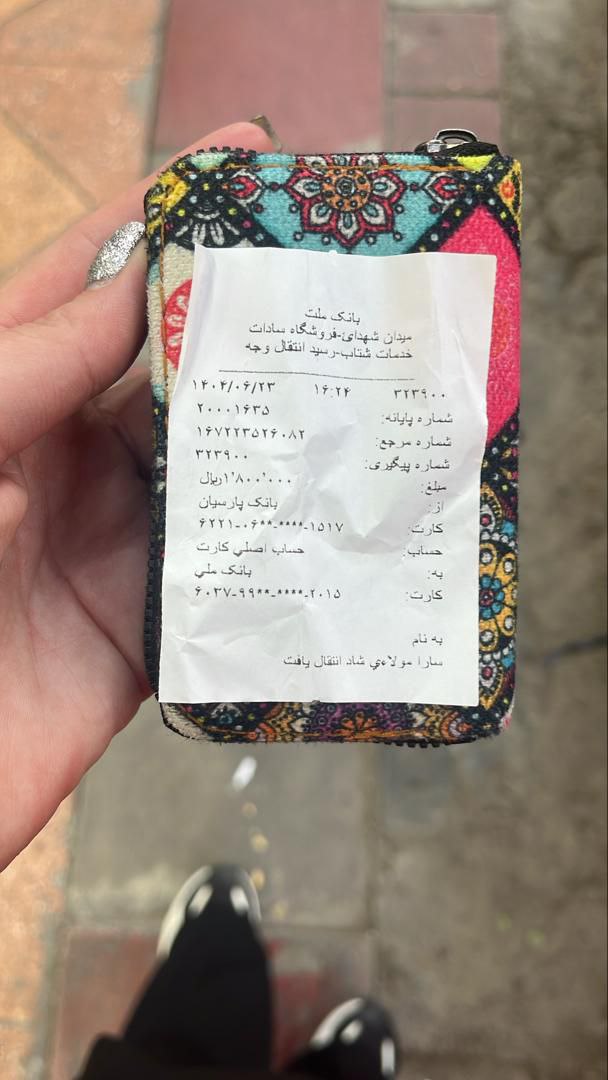 بانک ملت
میدان شهدائ-فروشگاه سادات
خدمات شتاب-رسید انتقال وجه
۱۴۰۴/۰۶/۲۳ ۱۶:۲۴ ۳۲۳۹۰۰
شماره پایانه: ۲۰۰۰۱۶۳۵
شماره مرجع: ۱۶۷۲۲۳۵۲۶۰۸۲
شماره پیگیری: ۳۲۳۹۰۰
مبلغ: ۱٬۸۰۰٬۰۰۰ریال
از: بانک پارسیان
کارت: ۶۲۲۱-۰۶**-****-۱۵۱۷
حساب: حساب اصلي کارت
به: بانک ملي
کارت: ۶۰۳۷-۹۹**-****-۲۰۱۵
به نام
سارا مولاءي شاد انتقال یافت